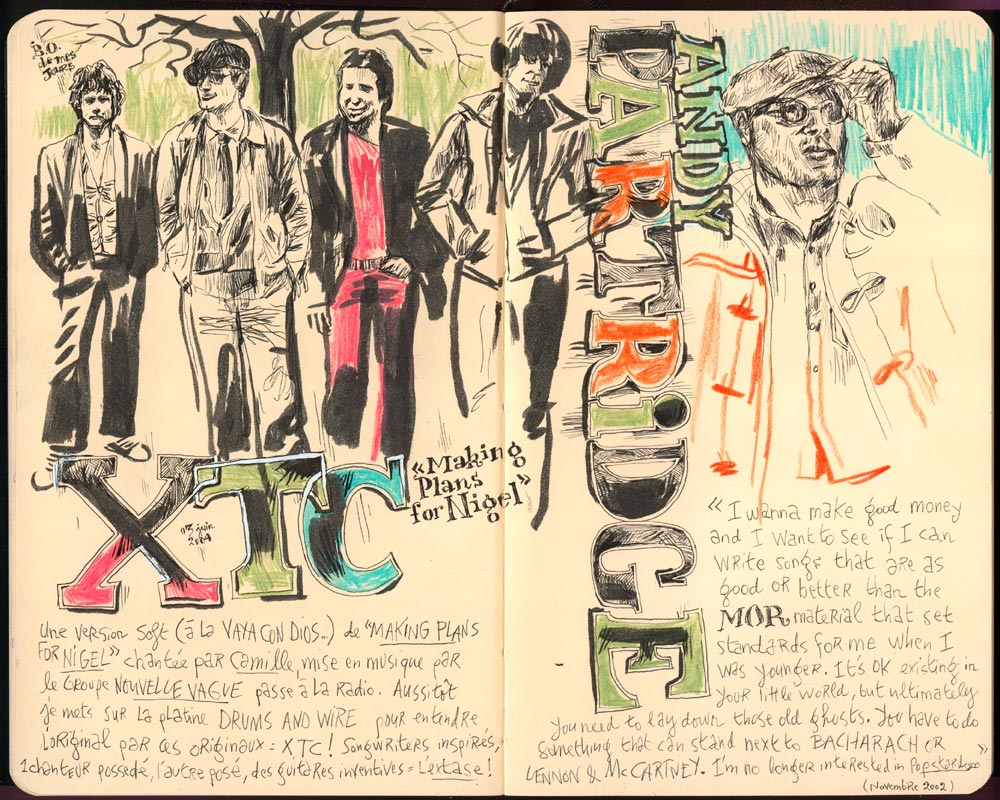 B.O.
de mes
jours
XTC
03 juin
2004
«Making
Plans
for Nigel»
Une version soft (à la VAYA CON DIOS..) de "MAKING PLANS
FOR NIGEL" chantée par Camille, mise en musique par
le Groupe NOUVELLE VAGUE passe à la radio. Aussitôt
je mets sur la platine DRUMS AND WIRE pour entendre
l'original par ces originaux : XTC ! Songwriters inspirés,
1 chanteur possédé, l'autre posé, des guitares inventives = L'extase !
ANDY
PARTRiDGE
« I wanna make good money
and I want to see if I can
write songs that are as
good or better than the
MOR material that set
standards for me when I
was younger. It's OK existing in
your little world, but ultimately
you need to lay down those old ghosts. You have to do
something that can stand next to BACHARACH OR
LENNON & McCARTNEY. I'm no longer interested in Popstardom »
(Novembre 2002)